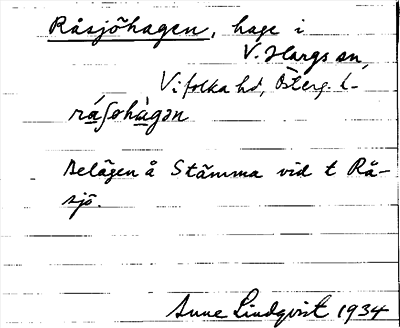 Råsjöhagen, hage i
V. Hargs sn,
Vifolka hd, Österg. l.
råʃohàgən
Belägen å Stämma vid t Rå-
sjö.
Sune Lindqvist 1934